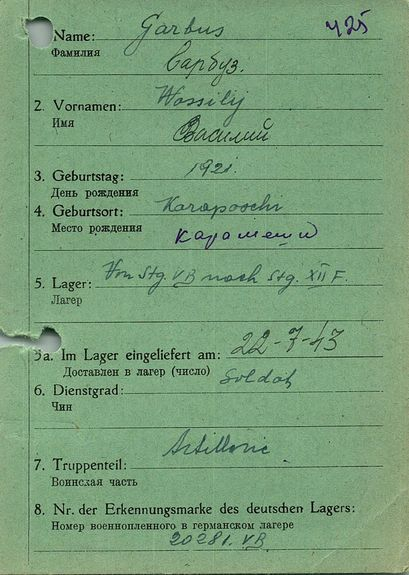 Name: Garbus 425
Фамилия Сарбуз.
2. Vornamen: Wassilij
Имя Василий
3. Geburtstag: 1921.
День рождения
4. Geburtsort: Karaposchi
Место рождения карапеши
5. Lager: Von Stg. VB nach Stg. XII F.
Лагер
5a. Im Lager eingeliefert am: 22-7-43
Доставлен в лагер (число)
6. Dienstgrad: Soldat
Чин
7. Truppenteil: Artillerie
Воинская часть
8. Nr. der Erkennungsmarke des deutschen Lagers:
Номер военнопленного в германском лагере
20281. VB